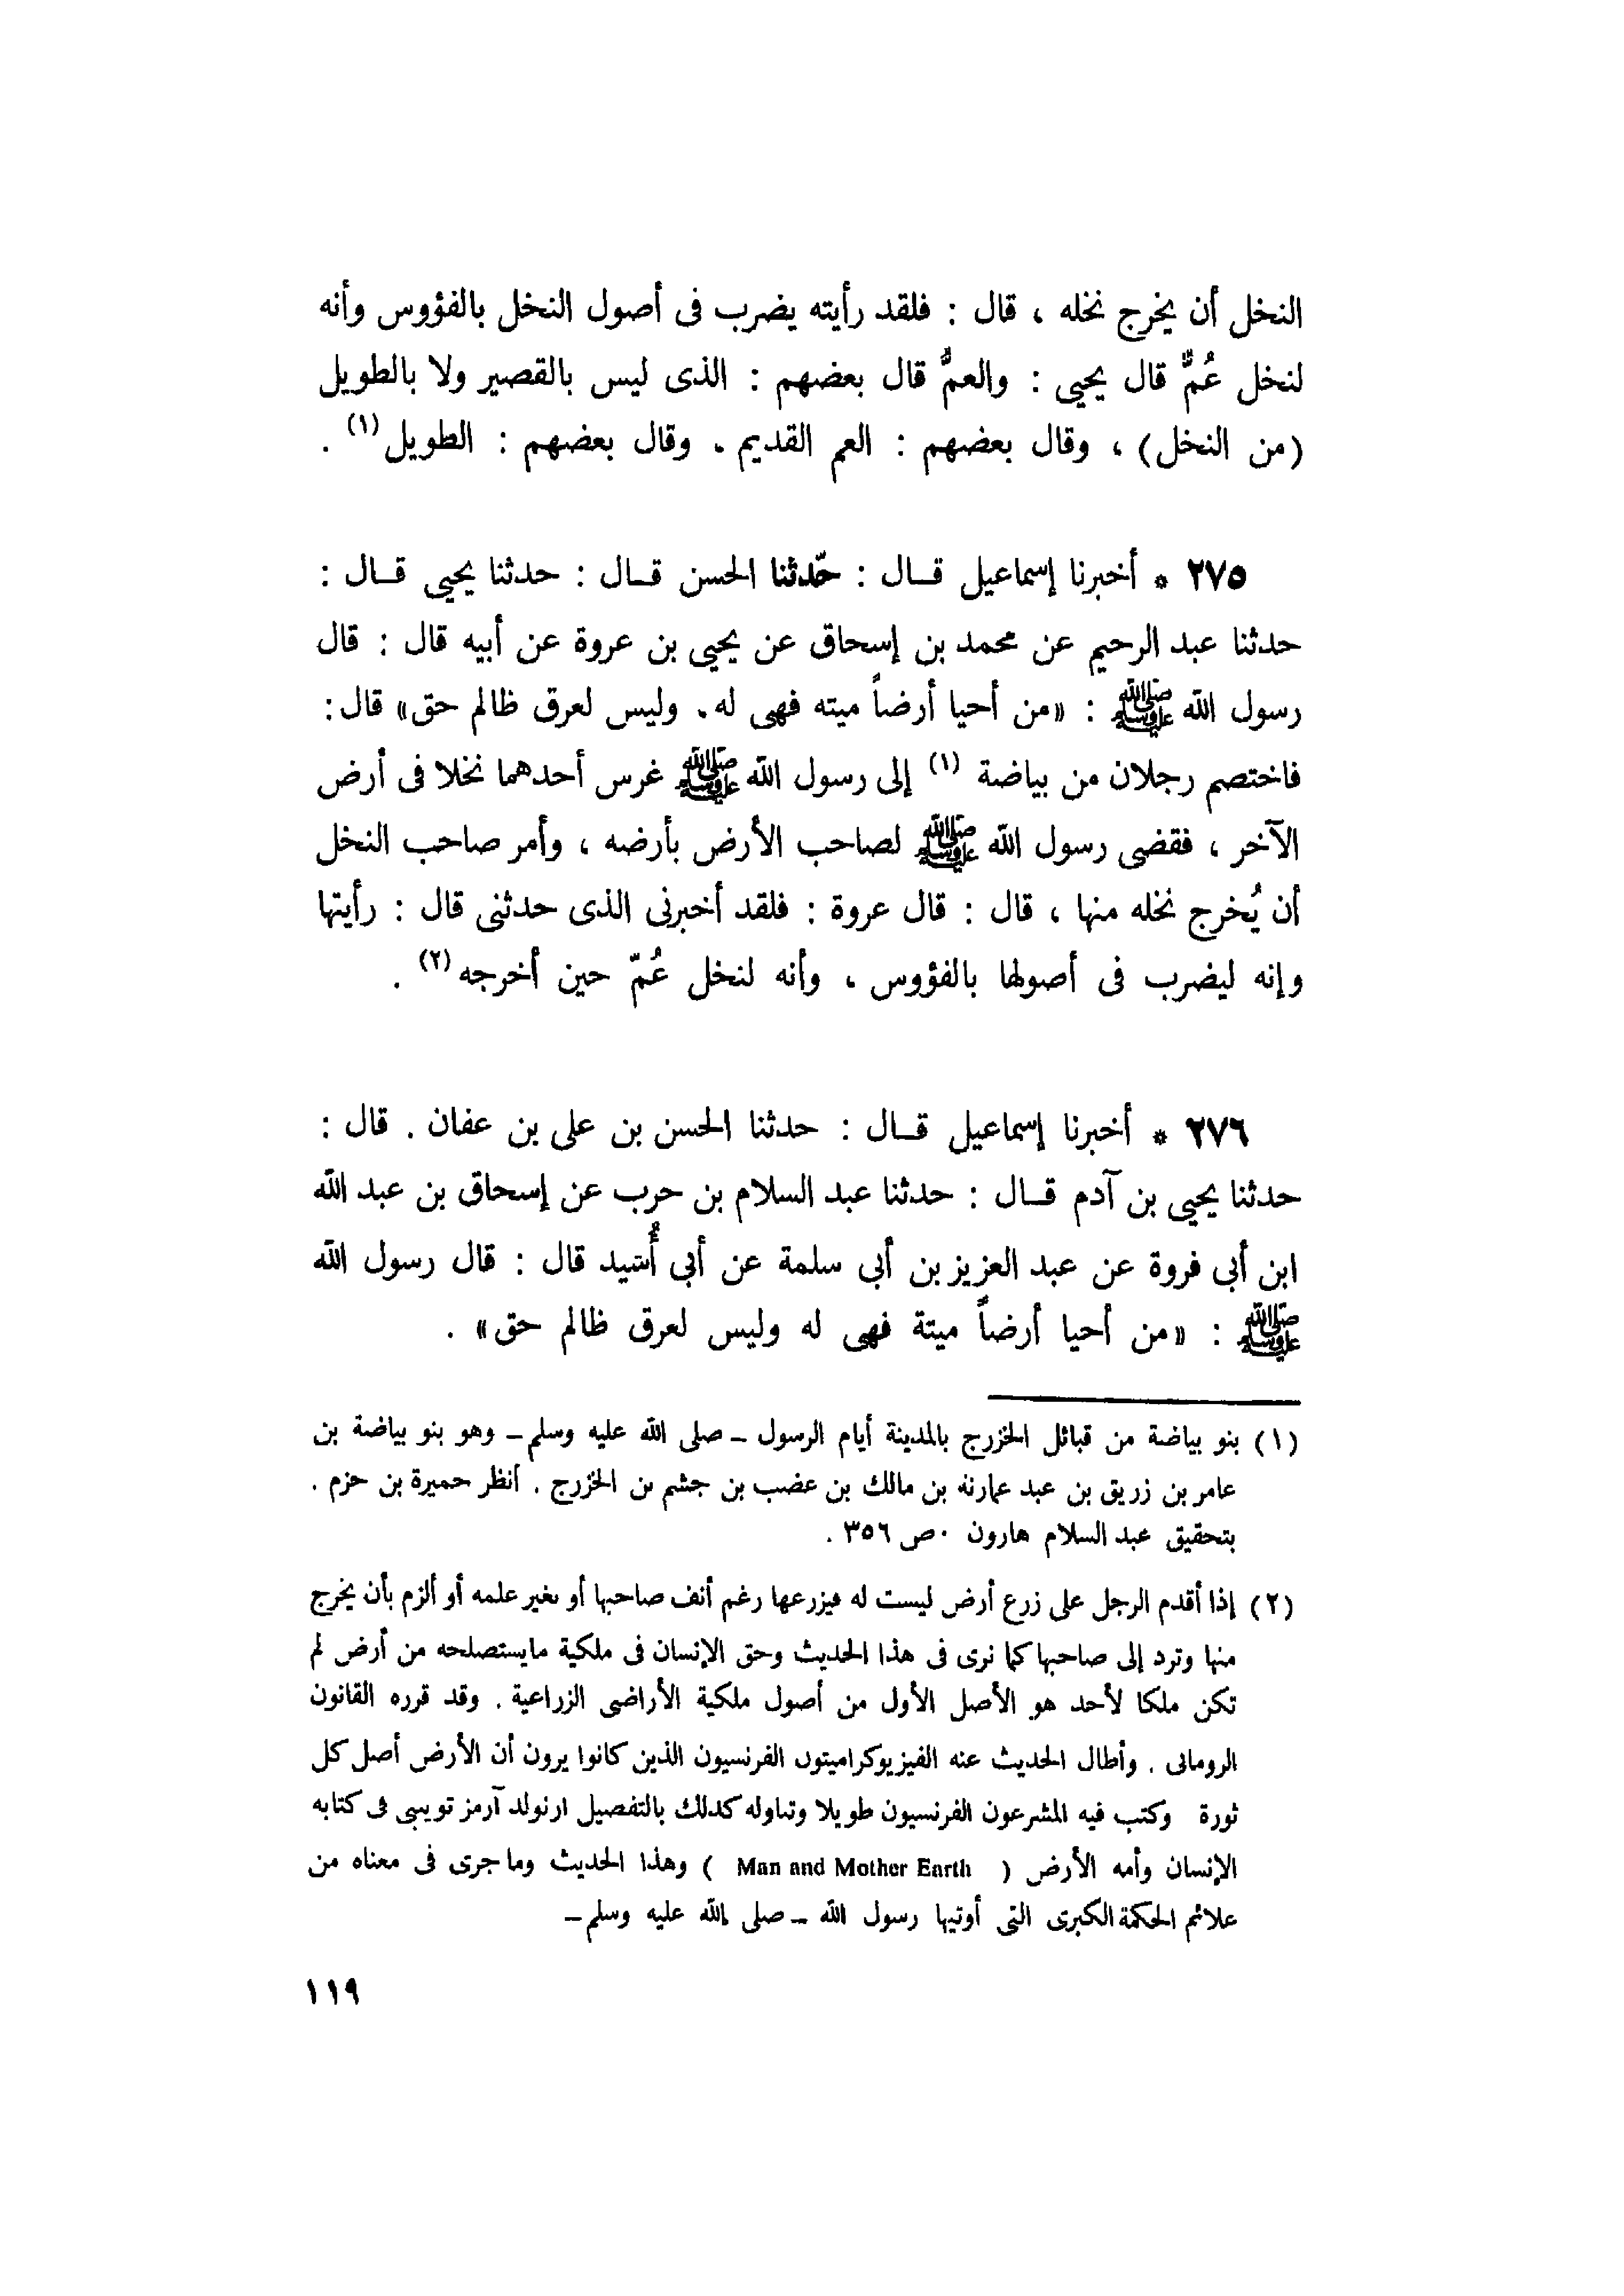 النخل أن يخرج نخله ، قال : فلقد رأيته يضرب فى أصول النخل بالفؤوس وأنه
لنخل عُمٌّ قال يحيى : والعمُّ قال بعضهم : الذى ليس بالقصير ولا بالطويل
(من النخل) ، وقال بعضهم : العم القديم . وقال بعضهم : الطويل (١) .
٢٧٥ * أخبرنا إسماعيل قــال : حّدثنا الحسن قــال : حدثنا يحيى قــال :
حدثنا عبد الرحيم عن محمد بن إسحاق عن يحيى بن عروة عن أبيه قال : قال
رسول الله ﷺ : «من أحيا أرضاً ميته فهى له . وليس لعرق ظالم حق» قال :
فاختصم رجلان من بياضة (١) إلى رسول الله ﷺ غرس أحدهما نخلا فى أرض
الآخر ، فقضى رسول الله ﷺ لصاحب الأرض بأرضه ، وأمر صاحب النخل
أن يُخرج نخله منها ، قال : قال عروة : فلقد أخبرنى الذى حدثنى قال : رأيتها
وإنه ليضرب فى أصولها بالفؤوس ، وأنه لنخل عُمّ حين أخرجه (٢) .
٢٧٦ * أخبرنا إسماعيل قــال : حدثنا الحسن بن على بن عفان . قال :
حدثنا يحيى بن آدم قــال : حدثنا عبد السلام بن حرب عن إسحاق بن عبد الله
ابن أبى فروة عن عبد العزيز بن أبى سلمة عن أبى أُسَيد قال : قال رسول الله
ﷺ : «من أحيا أرضاً ميتة فهى له وليس لعرق ظالم حق» .
(١) بنو بياضة من قبائل الخزرج بالمدينة أيام الرسول – صلى الله عليه وسلم – وهو بنو بياضة بن
عامر بن زريق بن عبد بن مالك بن عضب بن جشم بن الخزرج . أنظر حميرة بن حزم .
بتحقيق عبد السلام هارون . ص ٣٥٦ .
(٢) إذا أقدم الرجل على زرع أرض ليست له فيزرعها رغم أنف صاحبها أو بغير علمه أو ألزم بأن يخرج
منها وترد إلى صاحبها كما نرى فى هذا الحديث وحق الإنسان فى ملكية مايستصلحه من أرض لم
تكن ملكا لأحد هو الأصل الأول من أصول ملكية الأراضى الزراعية . وقد قرره القانون
الرومانى . وأطال الحديث عنه الفيزيوكراميتون الفرنسيون الذين كانوا يرون أن الأرض أصل كل
ثورة وكتب فيه المشرعون الفرنسيون طويلا وتناوله كذلك بالتفصيل ارنولد آرمز تويبى فى كتابه
الإنسان وأمه الأرض ( Man and Mother Earth ) وهذا الحديث وما جرى فى معناه من
علائم الحكمة الكبرى التى أوتيها رسول الله – صلى الله عليه وسلم –
١١٩